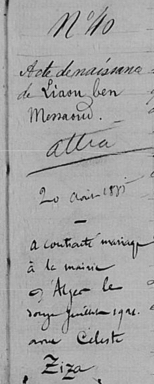 N° 40
Acte de naissance
de Liaou ben
Messaoud.
Attia
20 Août
a contracté mariage
à la mairie
d'Alger le
onze Juillet
avec Céleste
Ziza